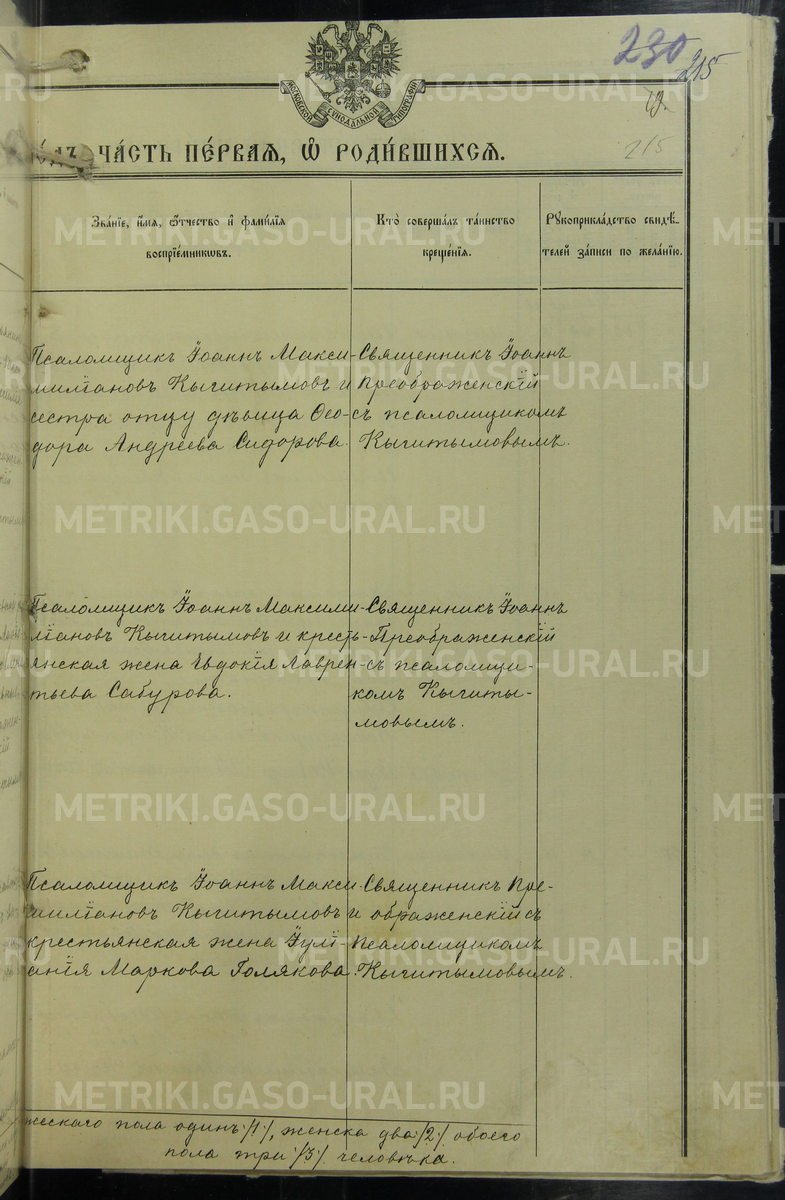 230
215
МОСКОВСКОЙ СѴНОДАЛЬНОЙ ТИПОГРАФІИ
215
ЧА́СТЬ ПЕ́РВАЯ, Ѡ҆ РОДИ́ВШИХСЯ.
Зва́нїе, и҆́мя, ѻ҆́тчество и҆ фами́лїя
воспрїе́мникωвъ.
Кто̀ соверша́лъ та́инство
креще́нїя.
Рꙋкоприкла́дство свидѣ́-
телей за́писи по жела́нїю.
Псаломщикъ Іоаннъ Макси-
миліановъ Кычитымовъ и
сестра отцу дѣвица Ѳео-
дора Андреева Сидорова.
Священникъ Іоаннъ
Преображенскій
съ псаломщикомъ
Кычитымовымъ.
Псаломщикъ Іоаннъ Максими-
ліановъ Кычитымовъ и кресть-
янская жена Евдокія Лаврен-
тьева Сабурова.
Священникъ Іоаннъ
Преображенскій
съ псаломщи-
комъ Кычиты-
мовымъ.
Псаломщикъ Іоаннъ Макси-
миліановъ Кычитымовъ и
крестьянская жена Іулі-
анія Маркова Голякова.
Священникъ Пре-
ображенскій съ
псаломщикомъ
Кычитымовымъ.
жескаго пола одинъ /1/, женска два /2/ обоего
пола три /3/ человѣка.
METRIKI.GASO-URAL.RU